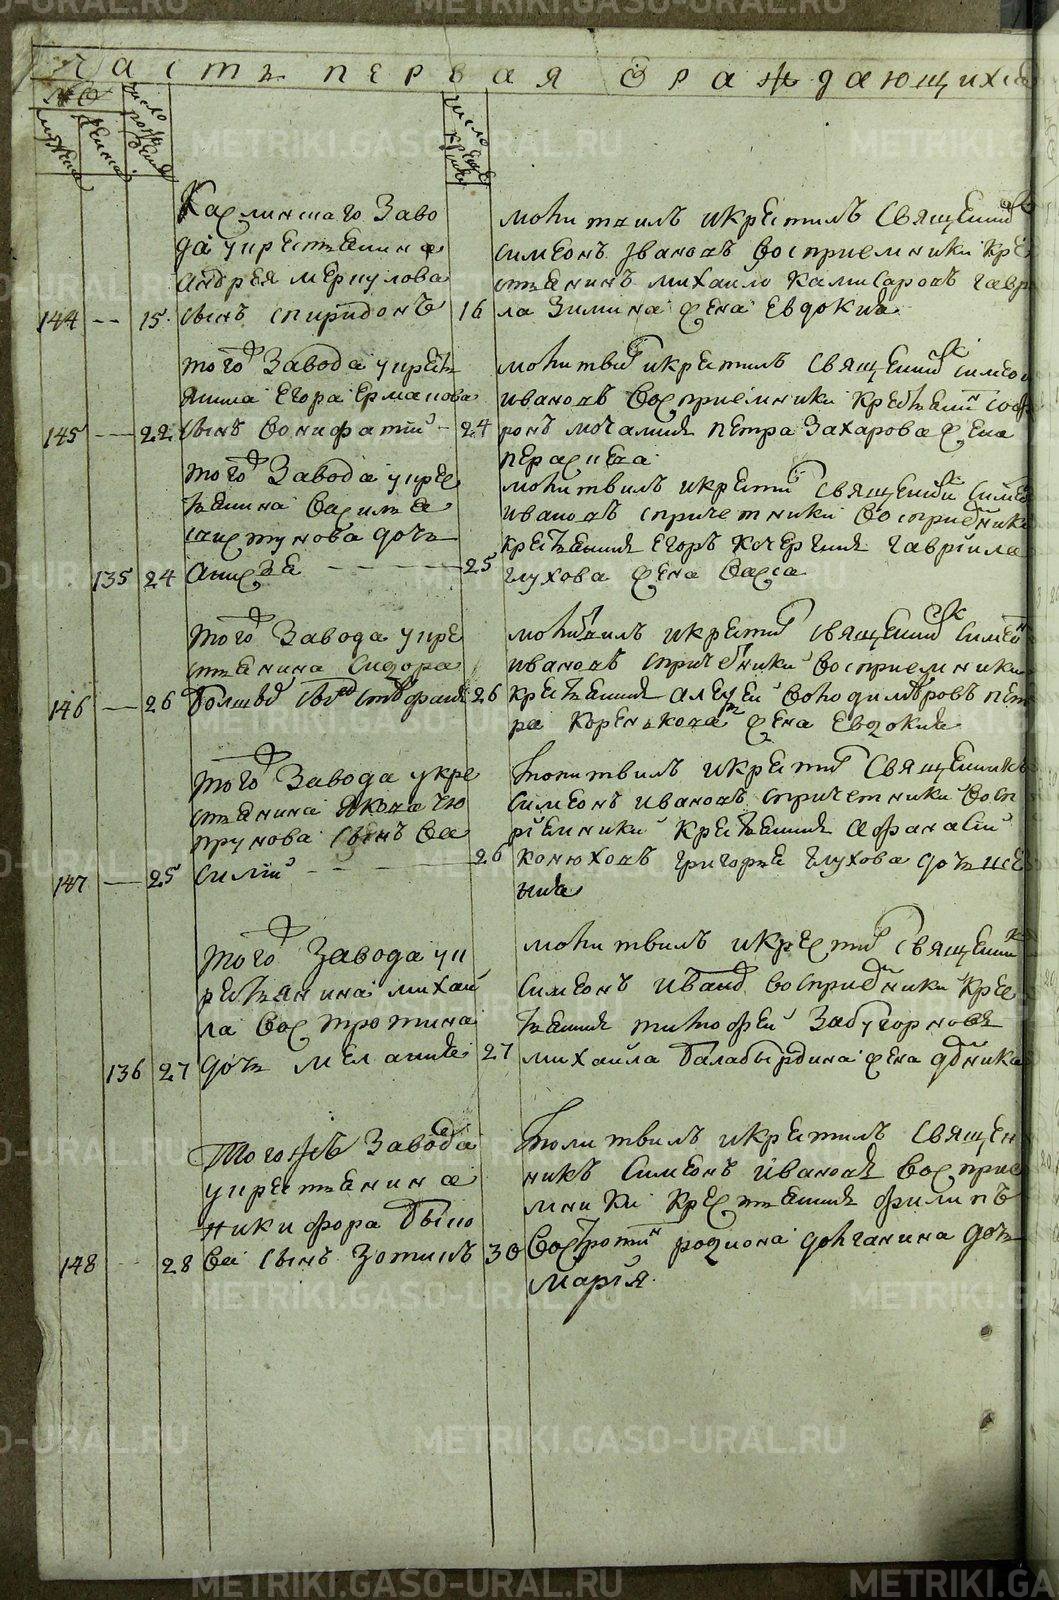 Часть первая ѡраждающихся
№
число рожденiя
мужеска
женска
число крещенiя
Каслинскаго Заво
да у крестьянина
андрея меркулова
144 -- 15 сынъ спиридонъ 16
молитвилъ и крестилъ Священник
симеонъ Ивановъ Восприемники Кре
стьянинъ михаило Камисаровъ гаври
ла Зимина жена Евдокия
того Завода у кресть
янина Егора Ермакова
145 -- 22 сынъ Вонифатiй - 24
молитви и крестилъ Священник симеон
ивановъ Восприемники Крестьянин соф
ронъ мочалинъ петра Захарова жена
параскева
того Завода у крес
тьянина Василья
дочь
135 24 25
молитвилъ и крести Священник симео
ивановъ с причетники Восприемники
крестьянинъ Егоръ Кочергинъ гаврiила
глухова жена Васса
того Завода у кре
стьянина сидора
146 -- 26 26
молитвилъ и крести Священник симеон
ивановъ с причетники восприемники
крестьянинъ алексей пет
ра Коренькова жена Евдокия
того Завода у кре
стьянина Якова чю
прунова сынъ Ва
147 -- 25 силiй 26
молитвилъ и крести Священникъ
симеонъ ивановъ с причетники Восп
рiемники Крестьянинъ афанасiй
Конюховъ григорья глухова дочь ксе
нья
того Завода у к
рестьянина михаи
ла Востротина
136 27 дочь мелания 27
молитвилъ и крести Священник
симеонъ Иванов восприемники Кре
стьянинъ тимофей Забугорновъ
михаила Балабырдина жена
Тогожъ Завода
у крестьянина
никифора Быко
148 28 ва сынъ Зотикъ 30
молитвилъ и крестилъ Священ
никъ симеонъ ивановъ Восприе
мники Крестьянинъ филипъ
Востротин родиона долганина дочь
марiя
METRIKI.GASO-URAL.RU